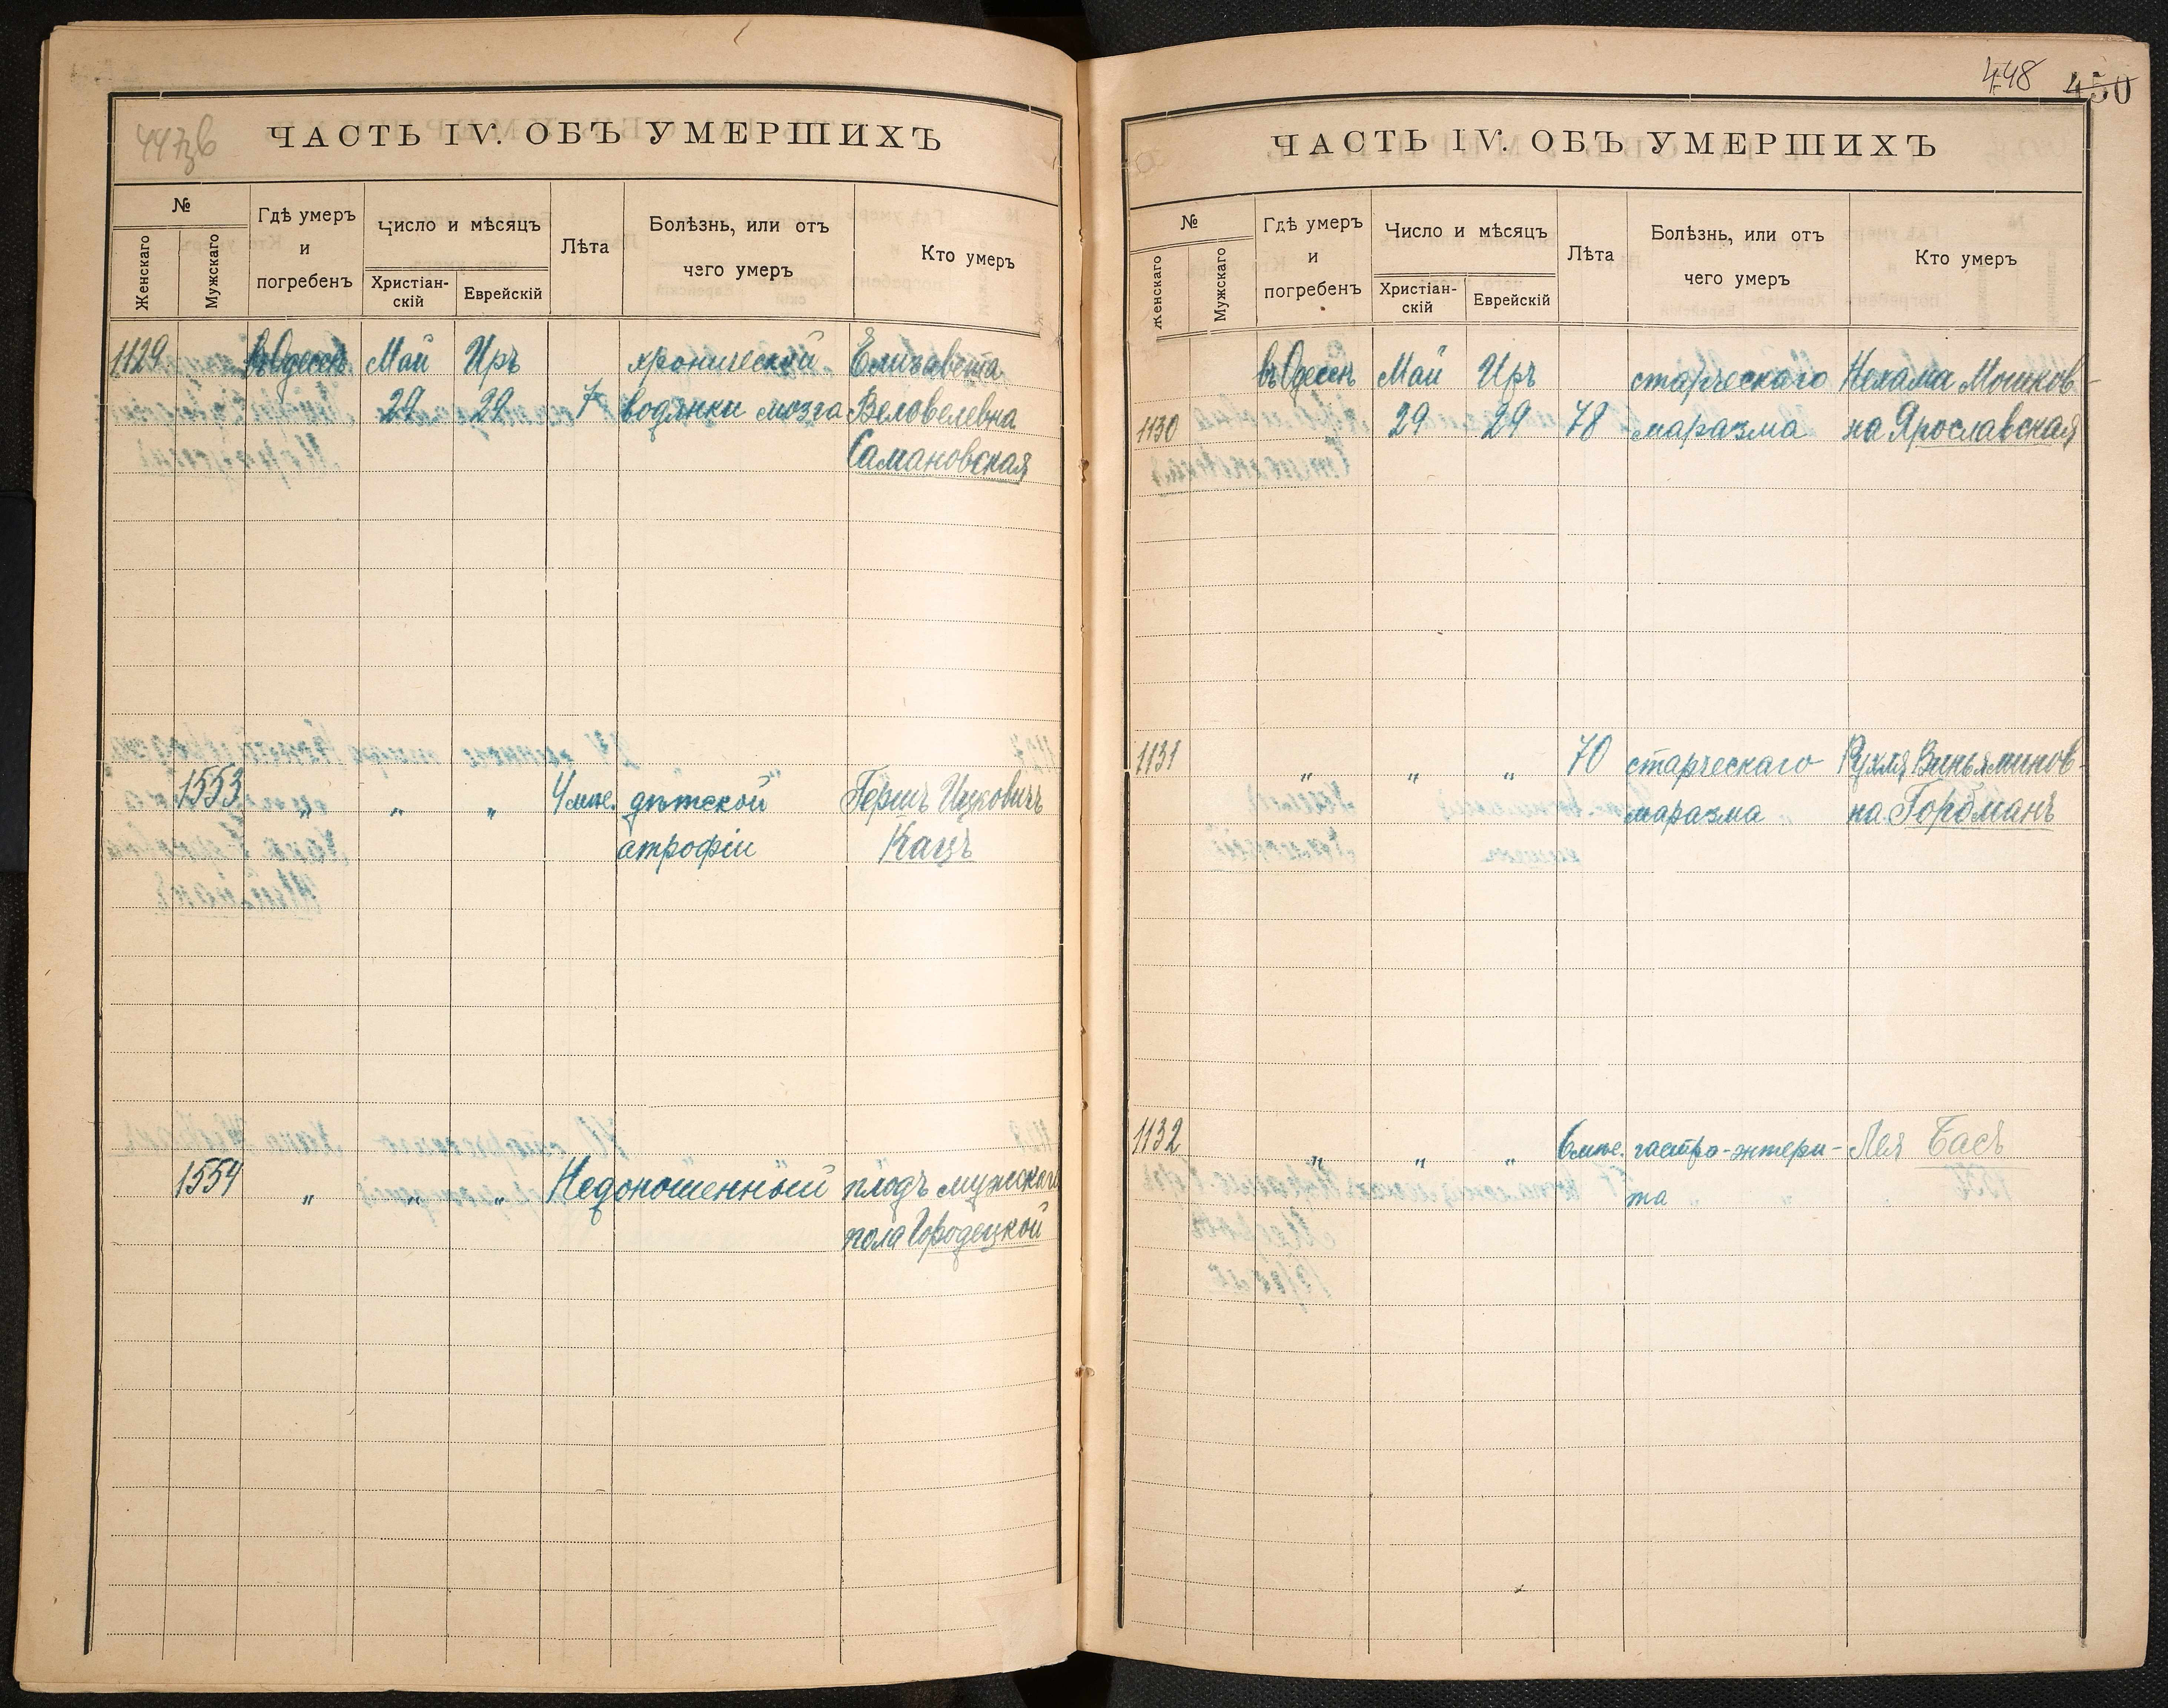 447зв
ЧАСТЬ IV. ОБЪ УМЕРШИХЪ
№
Женскаго
Мужскаго
Гдѣ умеръ
и
погребенъ
Число и мѣсяцъ
Христіан-
скій
Еврейскій
Лѣта
Болѣзнь, или отъ
чего умеръ
Кто умеръ
1129 въ Одессѣ Май Иръ хронической Елизавета
29 29 7 водянки мозга Веловелевна
Самановская
1553 " " " 4 мѣс. дѣтской Гершъ Ицковичъ
атрофіи Кацъ
1554 " " " Недоношенный плодъ мужскаго
пола Городецкой
448 450
ЧАСТЬ IV. ОБЪ УМЕРШИХЪ
№
Женскаго
Мужскаго
Гдѣ умеръ
и
погребенъ
Число и мѣсяцъ
Христіан-
скій
Еврейскій
Лѣта
Болѣзнь, или отъ
чего умеръ
Кто умеръ
въ Одессѣ Май Иръ старческаго Нехама Мошков-
1130 29 29 78 маразма на Ярославская
1131 " " " 70 старческаго Рухля Виньяминов-
маразма на Горбманъ
1132 " " " 6 мѣс. гастро-энтери- Лея Басъ
та